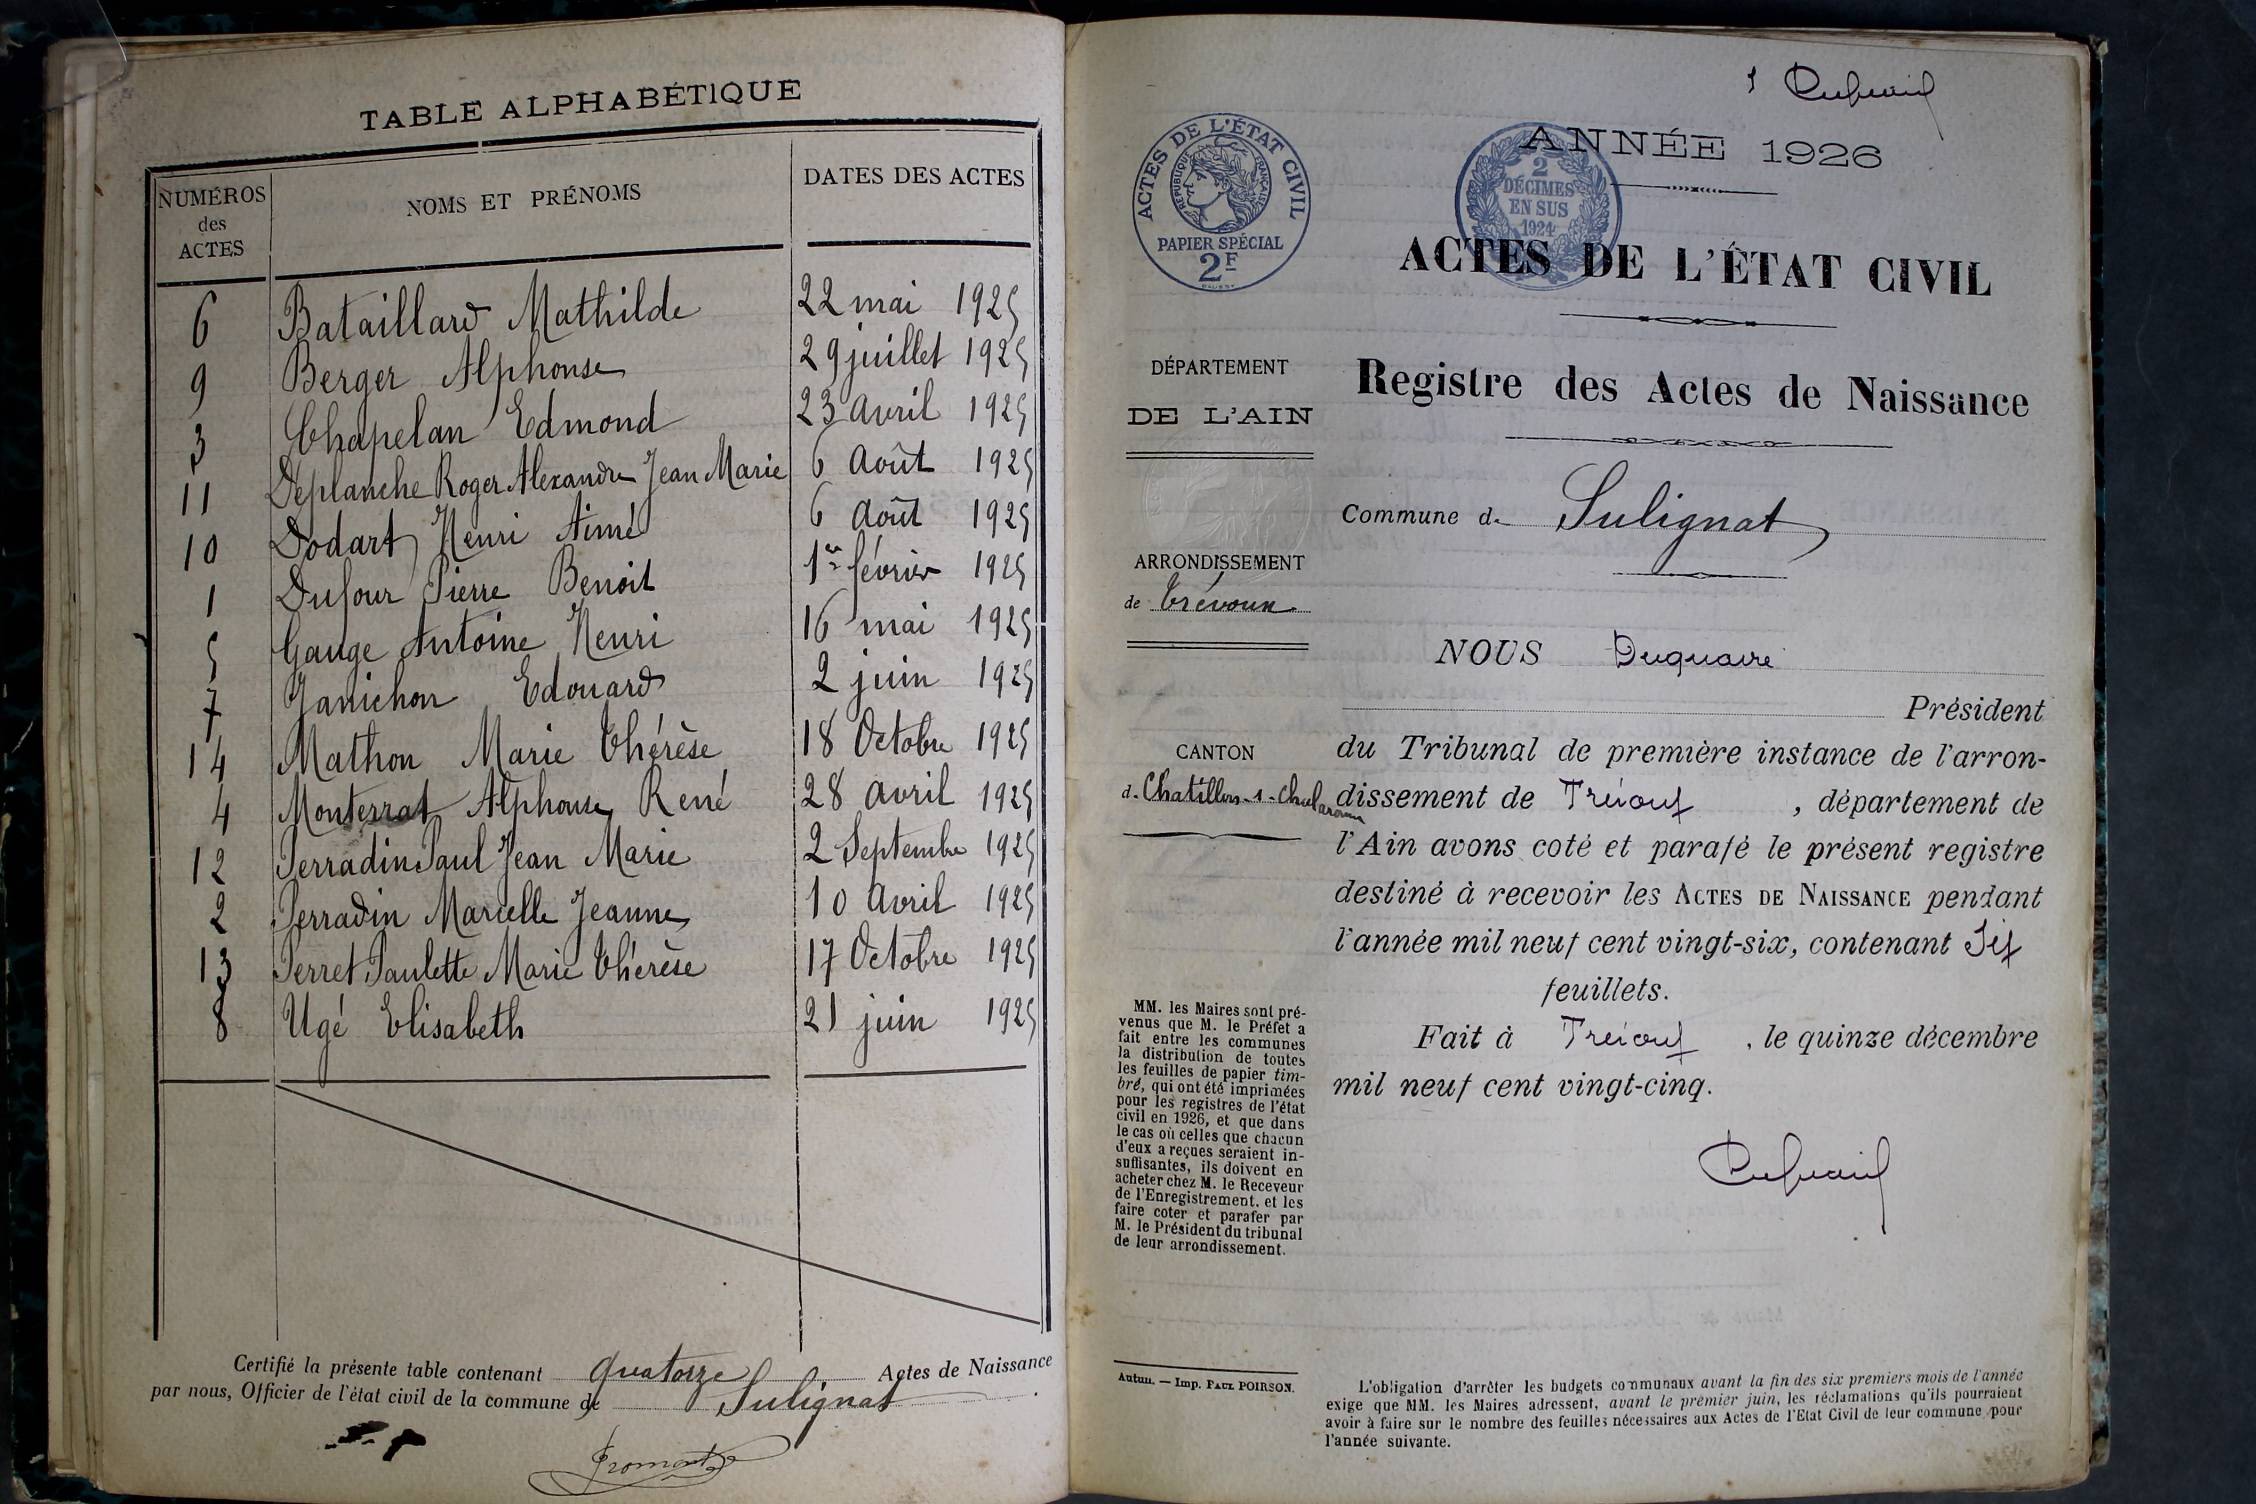 TABLE ALPHABÉTIQUE
NUMÉROS des ACTES | NOMS ET PRÉNOMS | DATES DES ACTES
6 Bataillard Mathilde 22 mai 1925
9 Berger Alphonse 29 juillet 1925
3 Chapelan Edmond 23 avril 1925
11 Déplanche Roger Alexandre Jean Marie 6 Août 1925
10 Dodart Henri Aimé 6 Août 1925
1 Dufour Pierre Benoit 1er février 1925
5 Gauge Antoine Henri 16 mai 1925
7 Janichon Edouard 2 juin 1925
14 Mathon Marie Thérèse 18 Octobre 1925
4 Monterrat Alphonse René 28 avril 1925
12 Perradin Paul Jean Marie 2 Septembre 1925
2 Perradin Marcelle Jeanne 10 Avril 1925
13 Perret Paulette Marie Thérèse 17 Octobre 1925
8 Ugé Elisabeth 21 juin 1925
Certifié la présente table contenant quatorze Actes de Naissance
par nous, Officier de l'état civil de la commune de Sulignat
Fromont
1
ANNÉE 1926
ACTES DE L'ÉTAT CIVIL
RÉPUBLIQUE FRANÇAISE
PAPIER SPÉCIAL
2F
2
DÉCIMES
EN SUS
1924
ACTES DE L'ÉTAT CIVIL
Registre des Actes de Naissance
DÉPARTEMENT
DE L'AIN
Commune de Sulignat
ARRONDISSEMENT
de Trévoux
CANTON
de Chatillon-s-Chalaronne
NOUS Duquaire
Président
du Tribunal de première instance de l'arron-
dissement de Trévoux, département de
l'Ain avons coté et parafé le présent registre
destiné à recevoir les ACTES DE NAISSANCE pendant
l'année mil neuf cent vingt-six, contenant Six
feuillets.
Fait à Trévoux, le quinze décembre
mil neuf cent vingt-cinq.
MM. les Maires sont pré-
venus que M. le Préfet a
fait entre les communes
la distribution de toutes
les feuilles de papier tim-
bré, qui ont été imprimées
pour les registres de l'état
civil en 1926, et que dans
le cas où celles que chacun
d'eux a reçues seraient in-
suffisantes, ils doivent en
acheter chez M. le Receveur
de l'Enregistrement. et les
faire coter et parafer par
M. le Président du tribunal
de leur arrondissement.
Autun. — Imp. PAUL POIRSON.
L'obligation d'arrêter les budgets communaux avant la fin des six premiers mois de l'année
exige que MM. les Maires adressent, avant le premier juin, les réclamations qu'ils pourraient
avoir à faire sur le nombre des feuilles nécessaires aux Actes de l'Etat Civil de leur commune pour
l'année suivante.